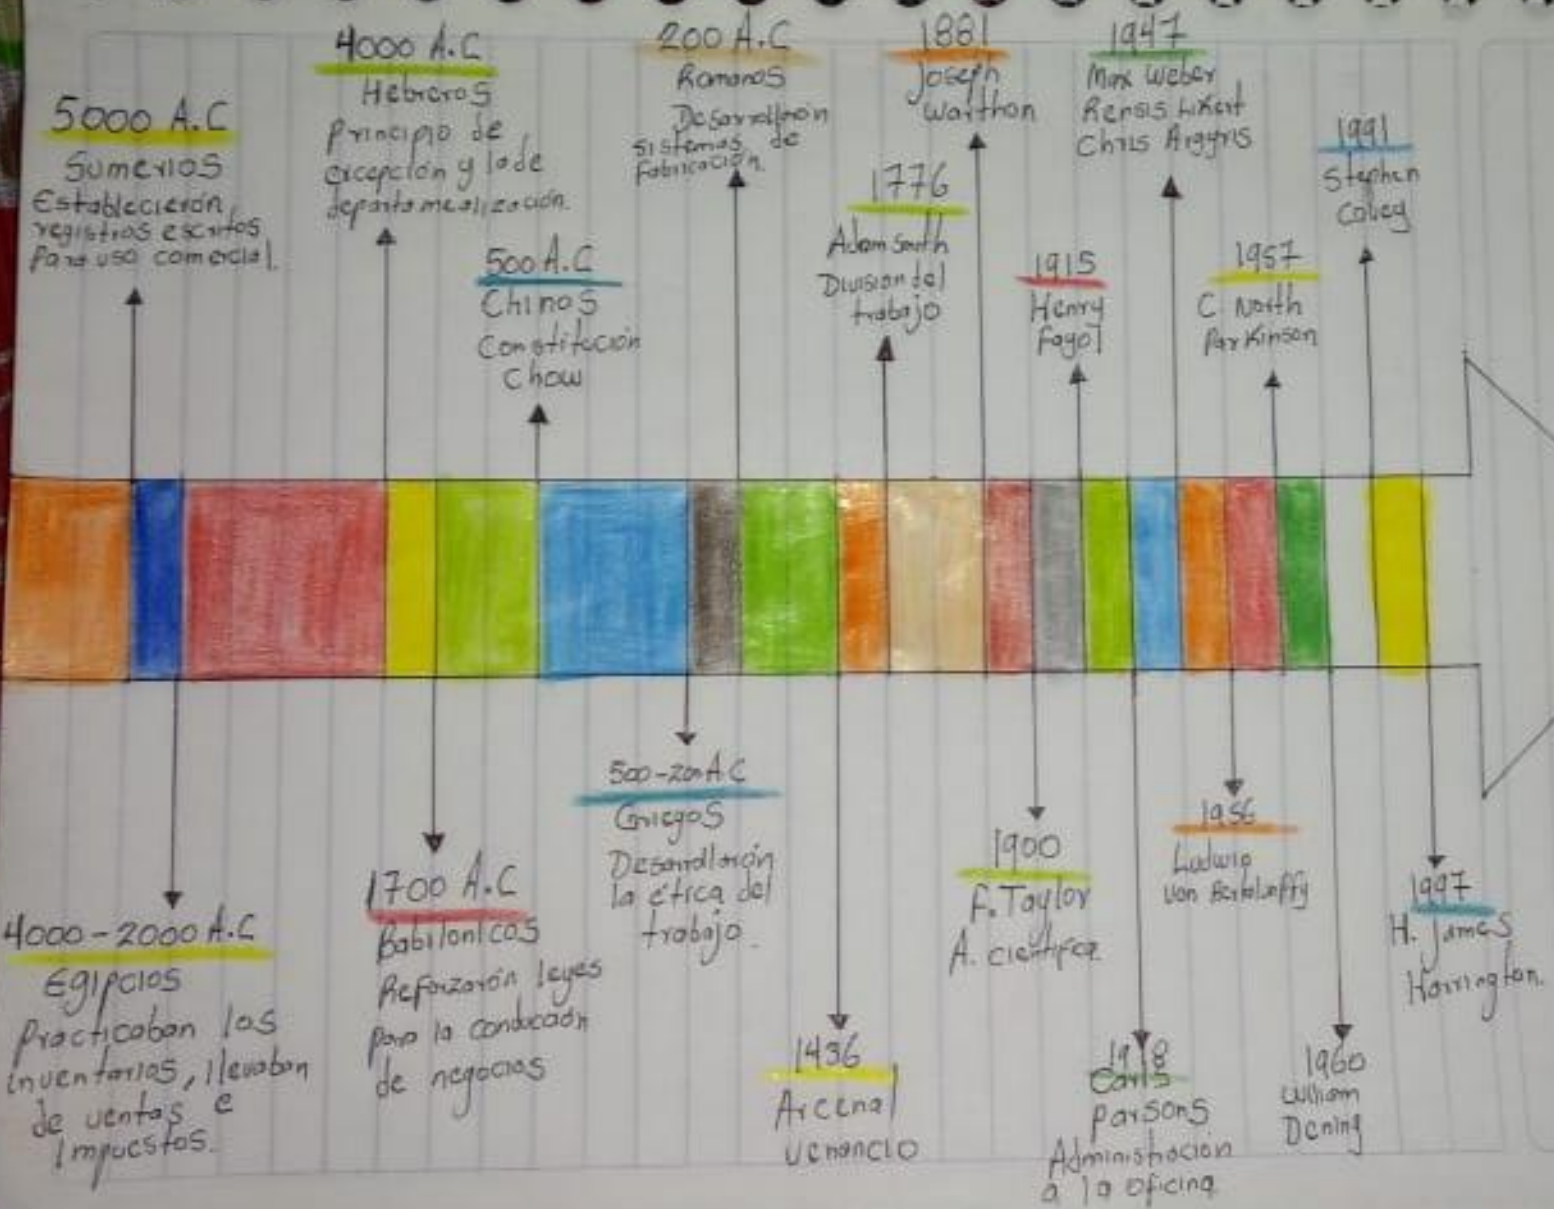 5000 A.C
Sumerios
Establecierón
registros escritos
Para uso comercial.
4000 A.C
Hebreros
Principio de
excepción y la de
departamealización.
500 A.C
Chinos
Constitución
Chow
200 A.C
Romanos
Desarrollarón
sistemas de
Fabricación.
1776
Adam Smith
Division del
trabajo
1881
Joseph
Warthon
1915
Henry
Fayol
1947
Max Weber
Rensis Likert
Chris Argyris
1957
C. North
Parkinson
1991
Stephen
Cobey
4000-2000 A.C
Egipcios
Practicaban los
inventarios, llevaban
de ventas e
Impuestos.
1700 A.C
Babilonicos
Reforzarón leyes
para la conducción
de negocios
500-200 A.C
Griegos
Desarrollarón
la ética del
trabajo.
1436
Arcenal
Venancio
1900
F. Taylor
A. científca
1918
Carls
Parsons
Administracion
a la oficina
1956
Ludwig
Von Bertalanffy
1960
William
Dening
1997
H. James
Harrington.